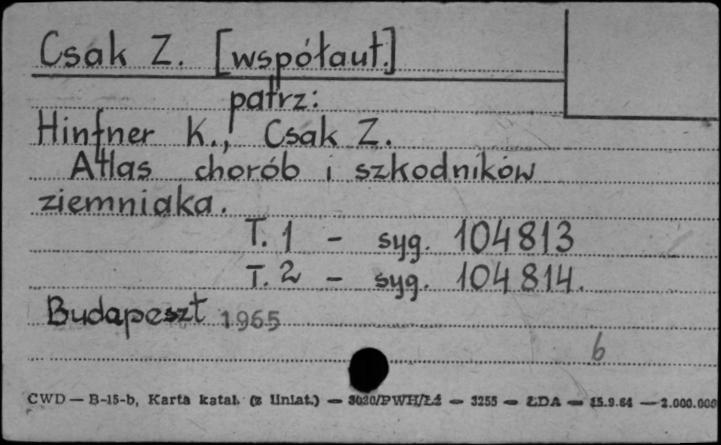 Csak Z. [współaut.]
patrz:
Hintner K., Csak Z.
Atlas chorób i szkodników
ziemniaka.
T. 1 - syg. 104813
T. 2 - syg. 104814.
Budapeszt 1965
b
CWD — B-15-b, Karta katal. (z liniat.) — 3030/PWH/Łź — 3255 — ŁDA — 15.9.64 — 2.000.000